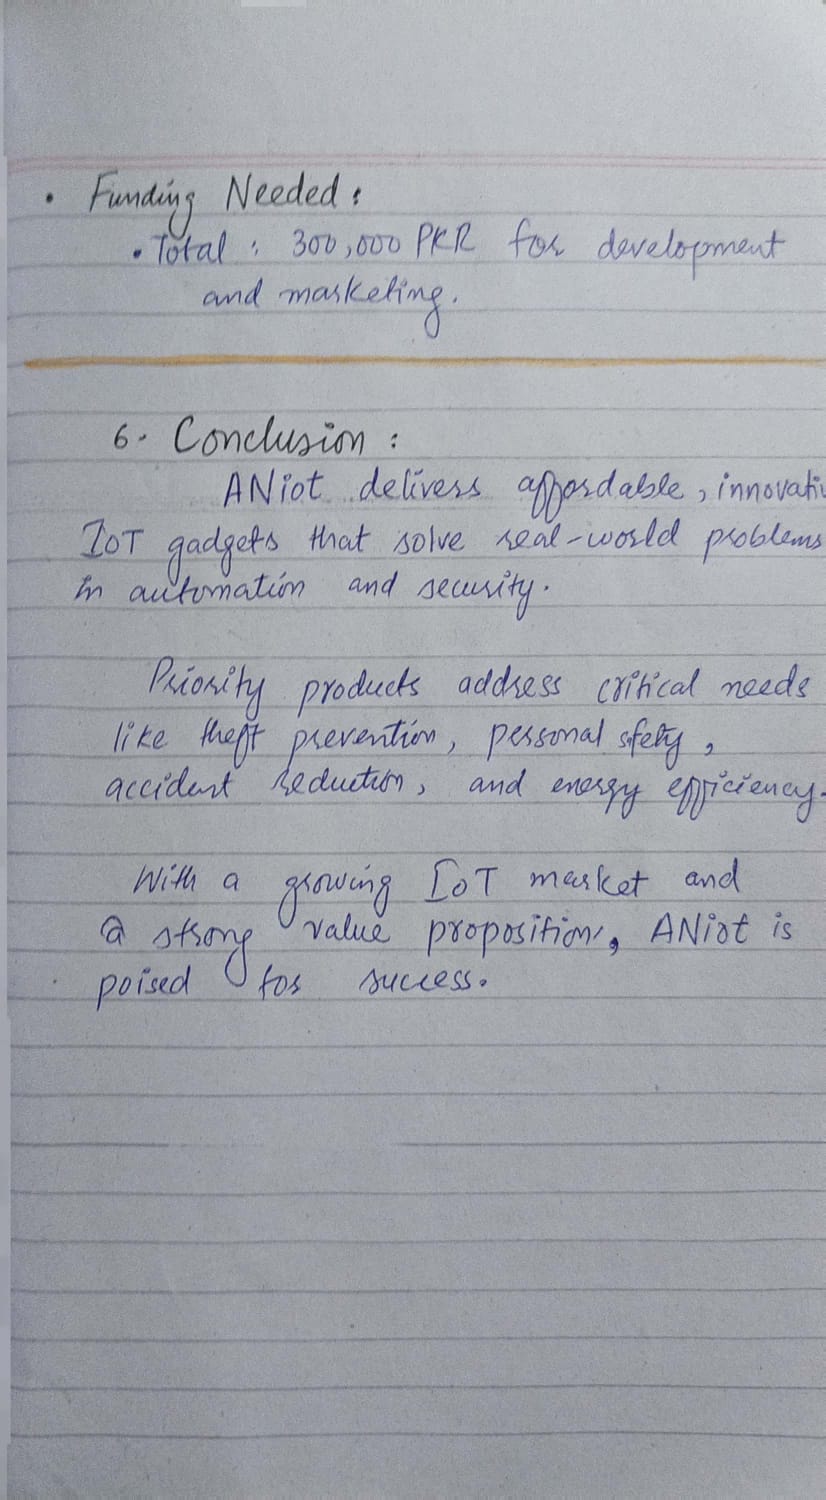 • Funding Needed :
• Total : 300,000 PKR for development
and marketing.
6. Conclusion :
ANiot delivers affordable, innovati
IoT gadgets that solve real-world problems
in automation and security.
Priority products address critical needs
like theft prevention, personal sfety,
accident reduction, and energy efficiency.
With a growing IoT market and
a strong value proposition, ANiot is
poised for success.